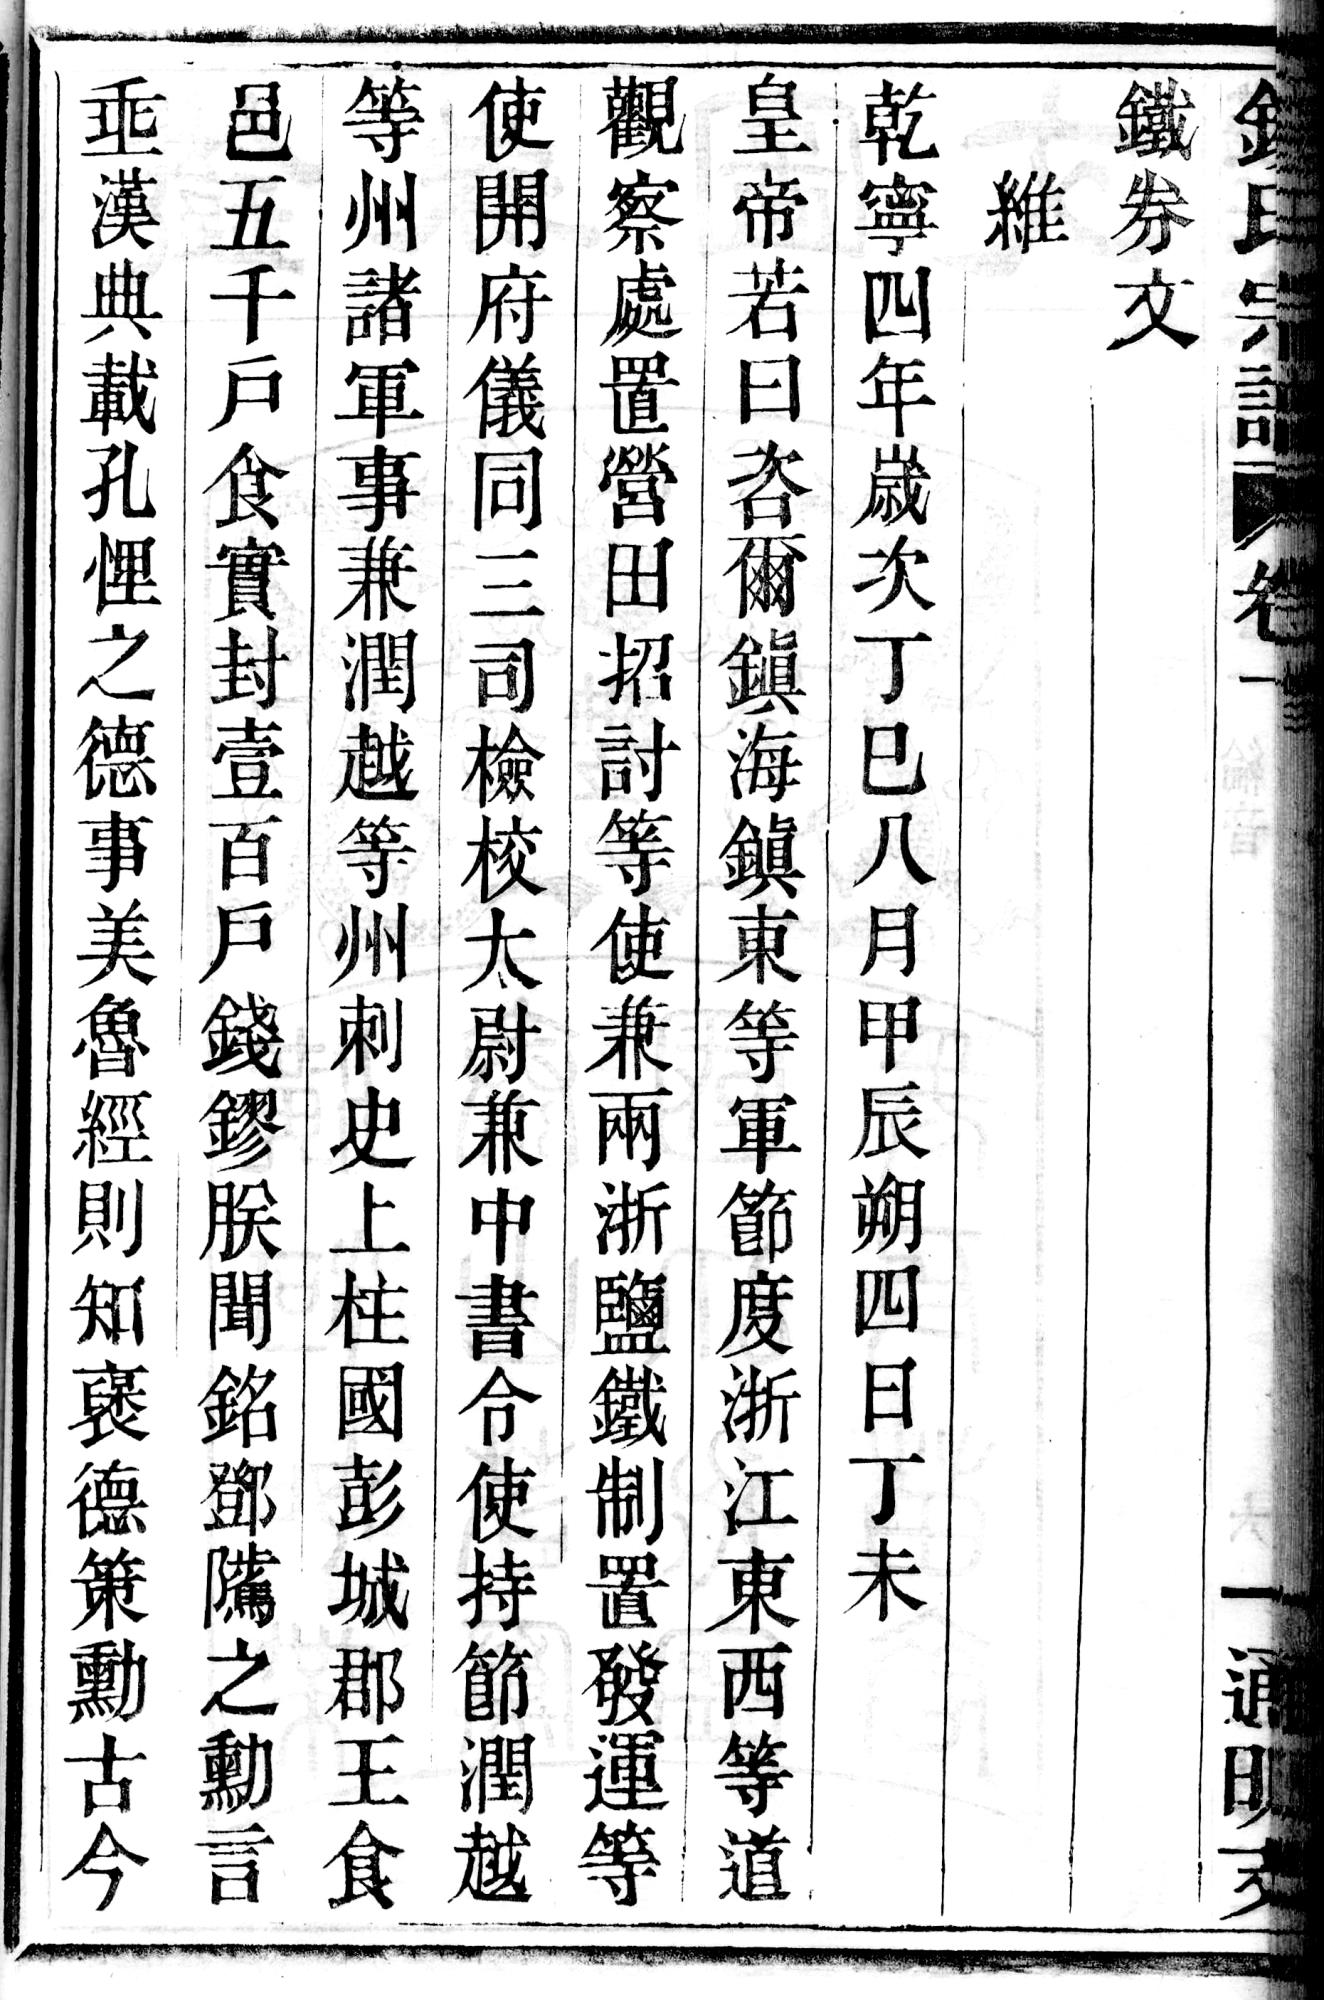 錢氏宗譜 卷一 一 通明支
鐵券文
維
乾寧四年歲次丁巳八月甲辰朔四日丁未
皇帝若曰咨爾鎭海鎭東等軍節度浙江東西等道
觀察處置營田招討等使兼兩浙鹽鐵制置發運等
使開府儀同三司檢校太尉兼中書令使持節潤越
等州諸軍事兼潤越等州刺史上柱國彭城郡王食
邑五千戶食實封壹百戶錢鏐朕聞銘鄧隲之勳言
垂漢典載孔悝之德事美魯經則知襃德策勳古今